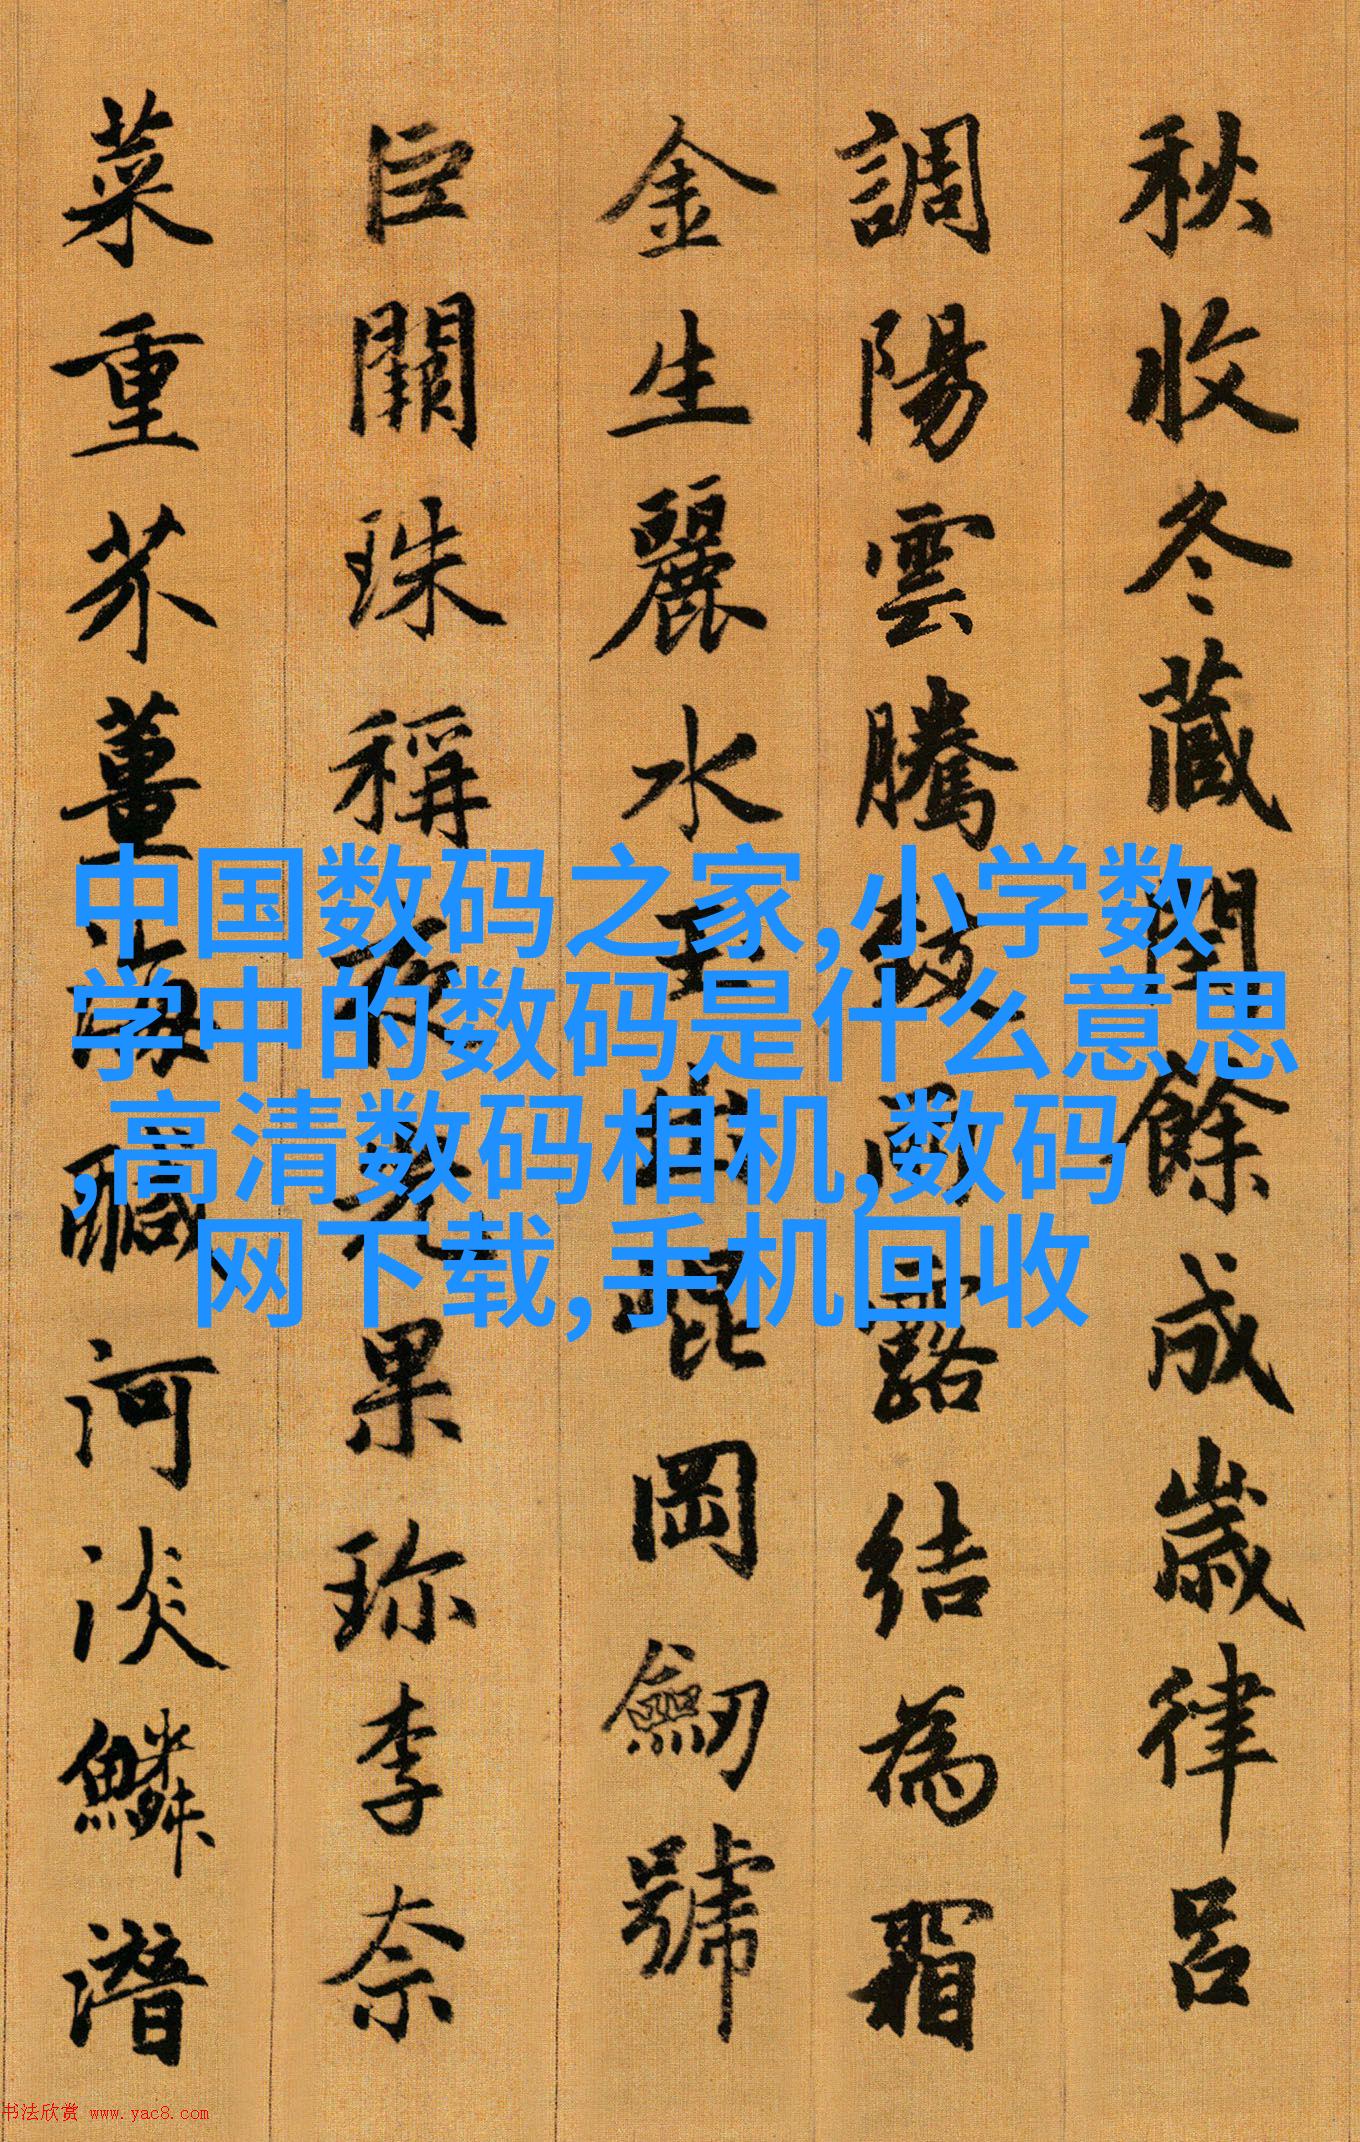 秋收冬藏閏餘成歲律呂
調陽雲騰致雨露結為霜
金生麗水玉出崑岡劒號
巨闕珠稱夜光果珎李奈
菜重芥薑海醎河淡鱗潛
中国数码之家,小学数
学中的数码是什么意思
,高清数码相机,数码
网下载,手机回收
书法欣赏 www.yac8.com